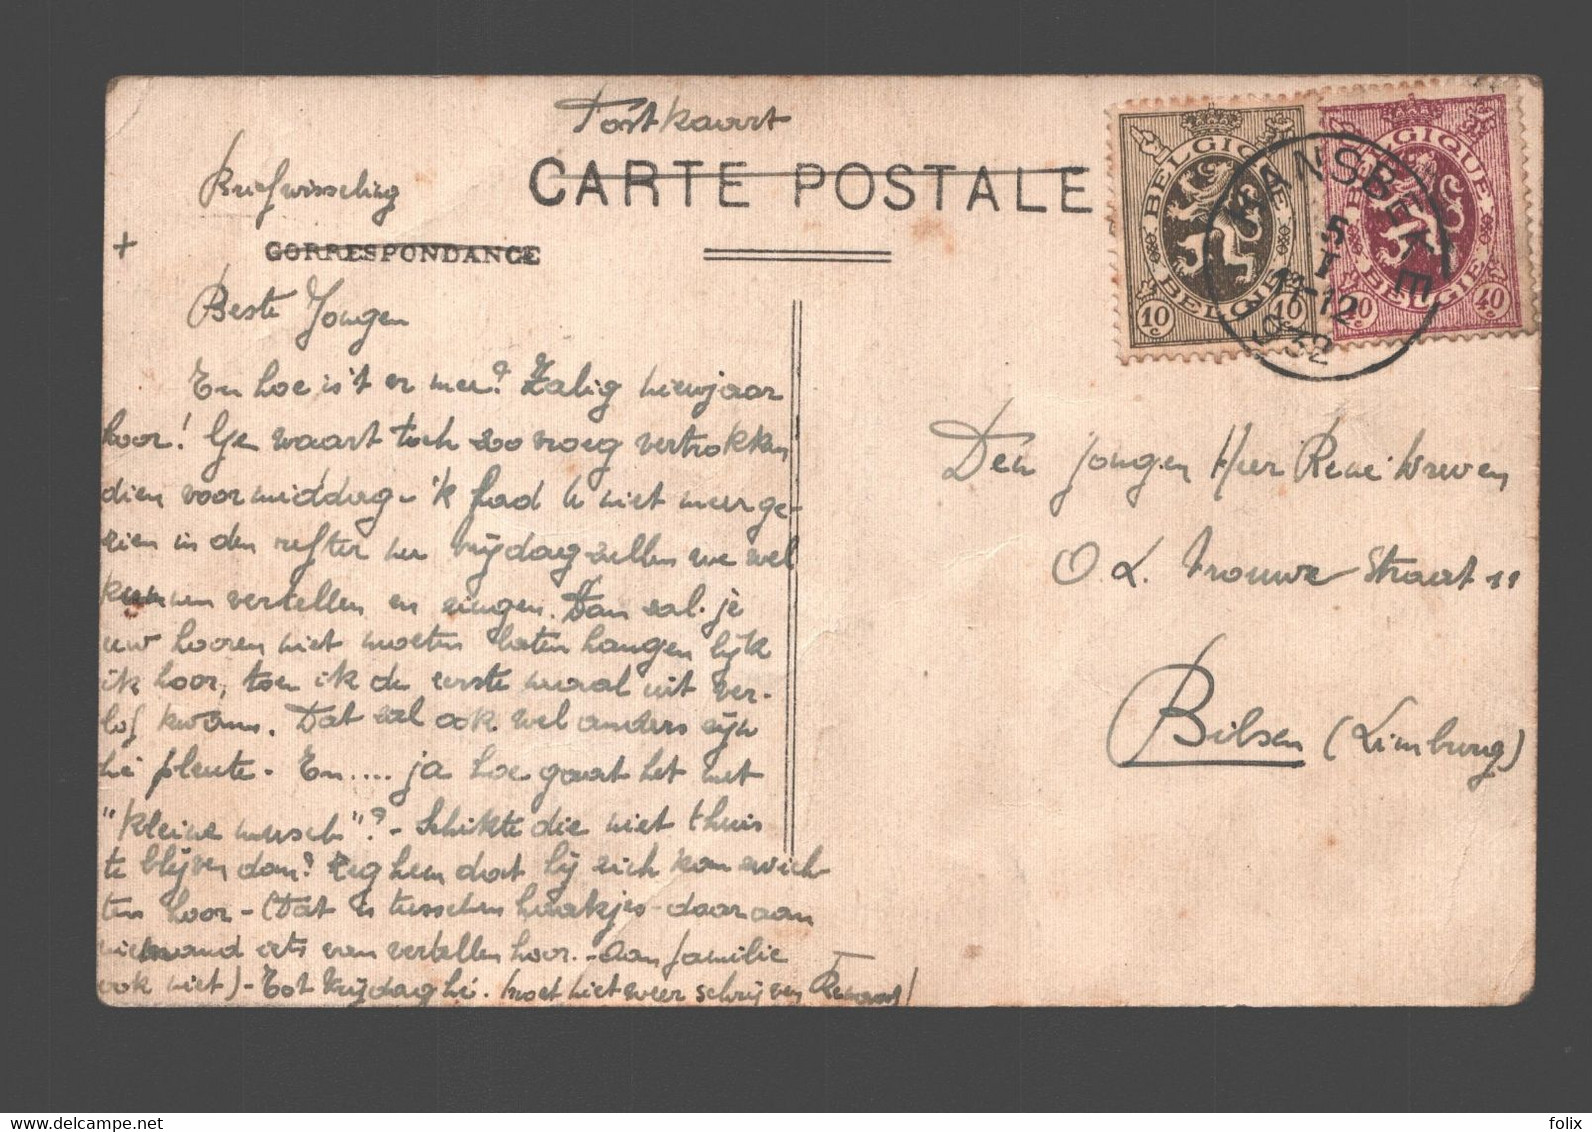 Postkaart
CARTE POSTALE
Briefwisseling
+
CORRESPONDANCE
BELGIQUE
BELGIE
10 c
10 c
BELGIQUE
BELGIE
40 c
40 c
HANSBEKE
5
I
11-12
1932
Beste Jongen
En hoe is 't er mee? Zalig nieuwjaar
hoor! Ge waart toch zoo vroeg vertrokken
dien voormiddag - ik had u niet meer ge-
zien in den refter nu vrijdag zullen we wel
kunnen vertellen en zingen. Dan zal je
uw hooren niet moeten laten hangen lijk
ik hoor, toen ik de eerste maal uit ver-
lof kwam. Dat zal ook wel anders zijn
hé pleute. En.... ja hoe gaat het met
"kleine musch"? - Schikte die niet thuis
te blijven dan? Zeg hem dat hij zich kan wich-
ten hoor - (Dat is tusschen haakjes - daar aan
niemand iets van vertellen hoor. - Aan familie
ook niet) - Tot Vrijdag hé. (moet niet weer schrijven
Den jongen Heer René
O. L. Vrouwe Straat 11
Bilsen (Limburg)
www.delcampe.net
folix